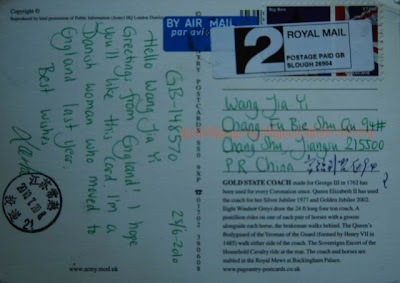 Copyright ©
Reproduced by kind permission of Public Information (Army) HQ London District
BY AIR MAIL
par avion
Big Ben
2
ROYAL MAIL
POSTAGE PAID GB
SLOUGH 26504
GB-148570
29/6-2010
Hello Wang Jia Yi
Greetings from England! I hope
you'll like this card. I'm a
Danish woman who moved to
England last year.
Best wishes
Wang Jia Yi
Chang Fu Bie Shu Qu 94#
Chang Shu, Jiangsu 215500
PR China
GOLD STATE COACH made for George III in 1762 has
been used for every Coronation since. Queen Elizabeth II has used
the coach for her Silver Jubilee 1977 and Golden Jubilee 2002.
Eight Windsor Greys draw the 24 ft long four ton coach. A
postilion rides on one of each pair of horses with a groom
alongside each horse, the brakeman walks behind. The Queen's
Bodyguard of the Yeoman of the Guard (formed by Henry VII in
1485) walk either side of the coach. The Sovereigns Escort of the
Household Cavalry ride at the rear. The coach and horses are
stabled in the Royal Mews at Buckingham Palace.
www.army.mod.uk
www.pageantry-postcards.co.uk